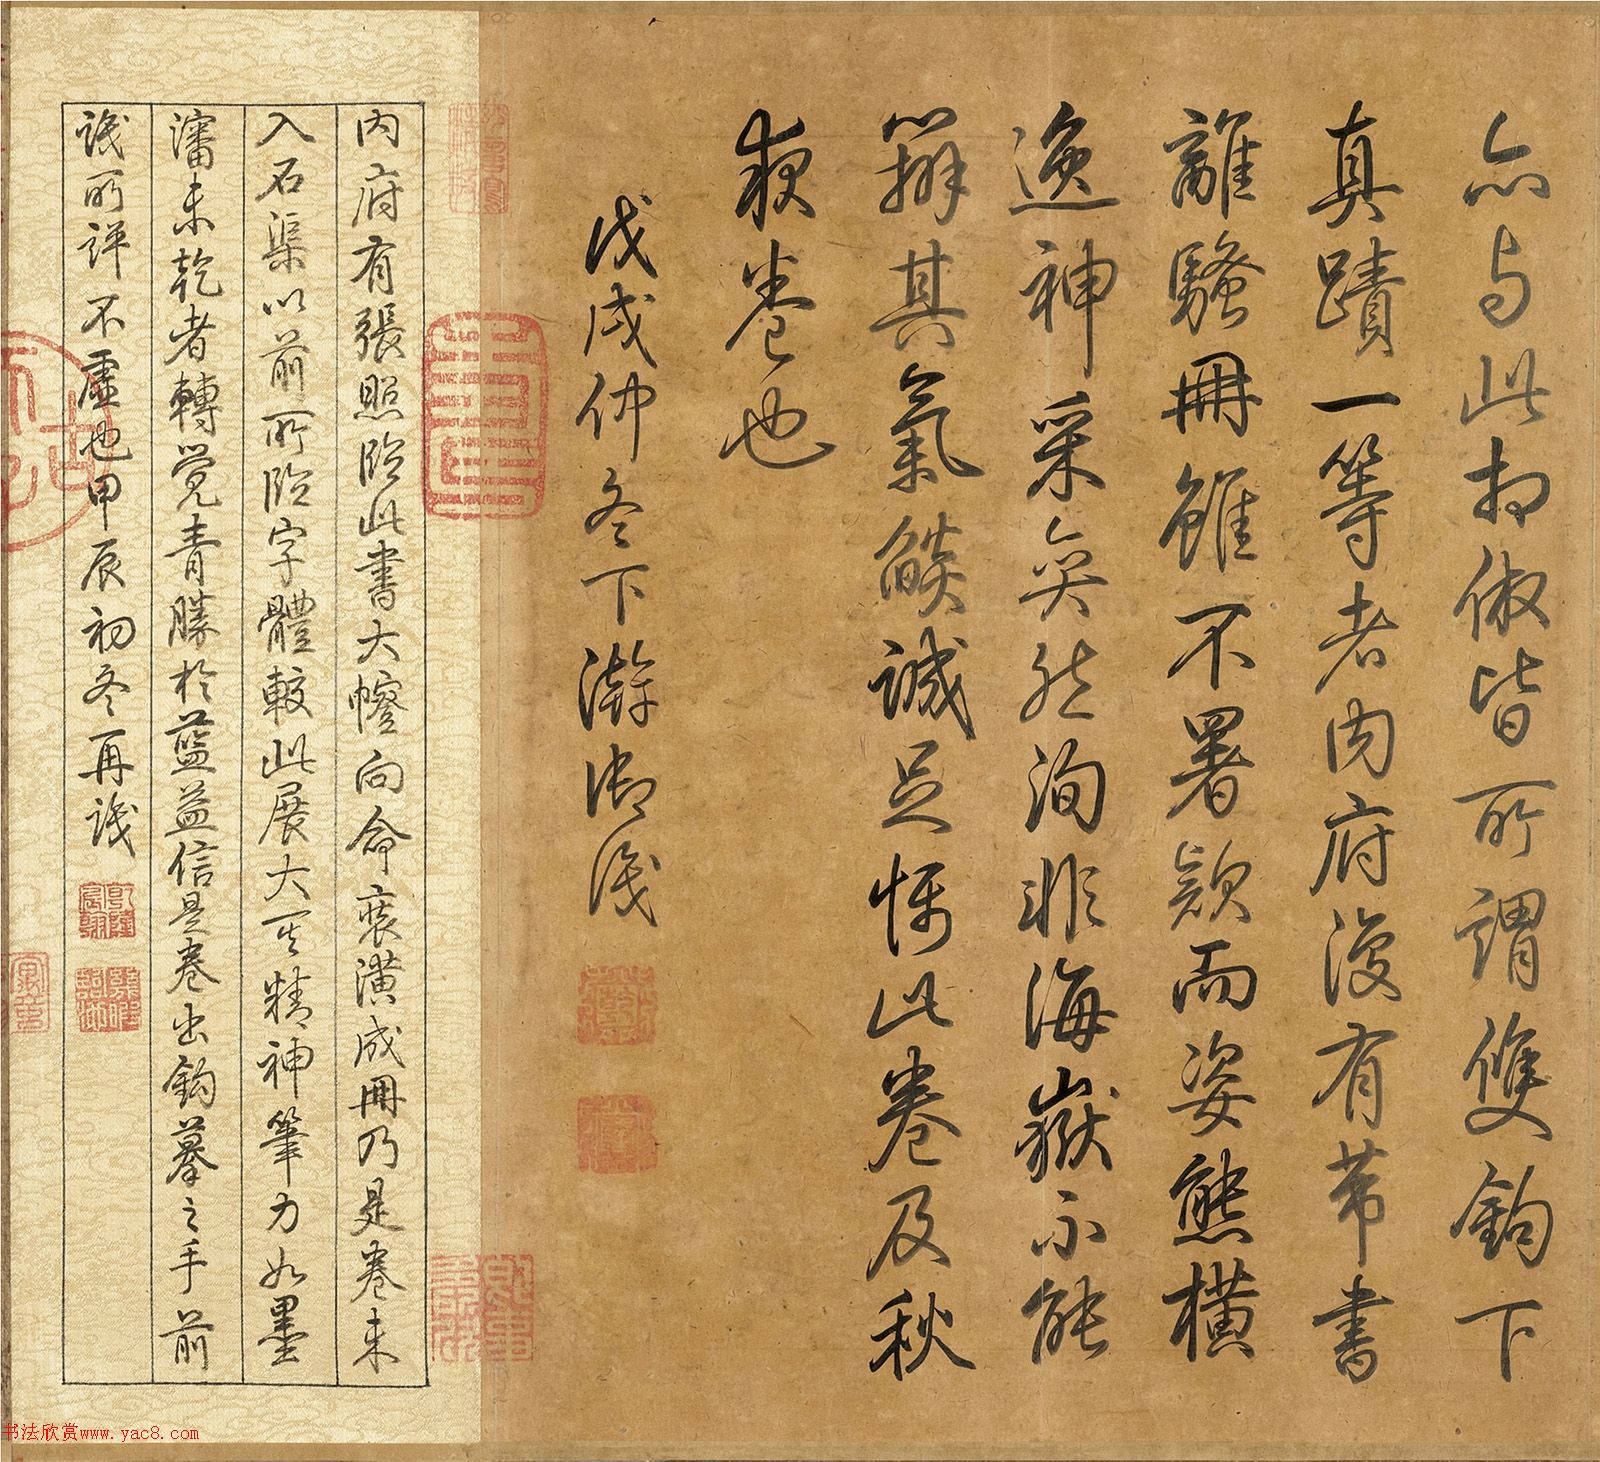 亦与此相倣皆所謂雙鉤下
真蹟一等者内府没有芾書
離騷冊雖不署款而姿態橫
逸神采奕然洵非海嶽不能
辨其氣燄誠足怖此卷及秋
狹卷也
戊戌仲冬下澣御識
内府有張照臨此書大幢向命裝潢成冊乃是卷未
入石渠以前所臨字體較此展大其精神筆力如墨
瀋未乾者轉覺青勝於藍益信是卷出鉤摹之手前
識所評不虛也甲辰初冬再識
书法欣赏www.yac8.com